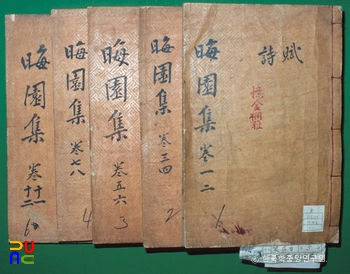 晦園集 卷十一 十二
6
晦園集 卷七八
4
晦園集 卷五六
3
晦園集 卷三四
2
晦園集 卷一二
1
賦
詩
한국학중앙연구원